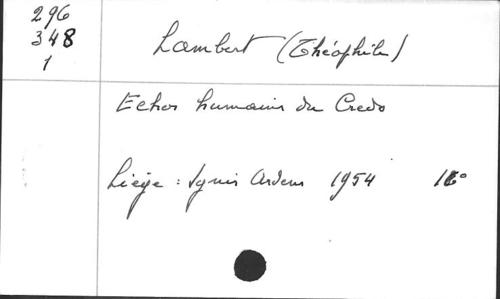 296
348
1
Lambert (Théophile)
Echos humains du Credo
Liège : Ignis Ardens 1954 16°